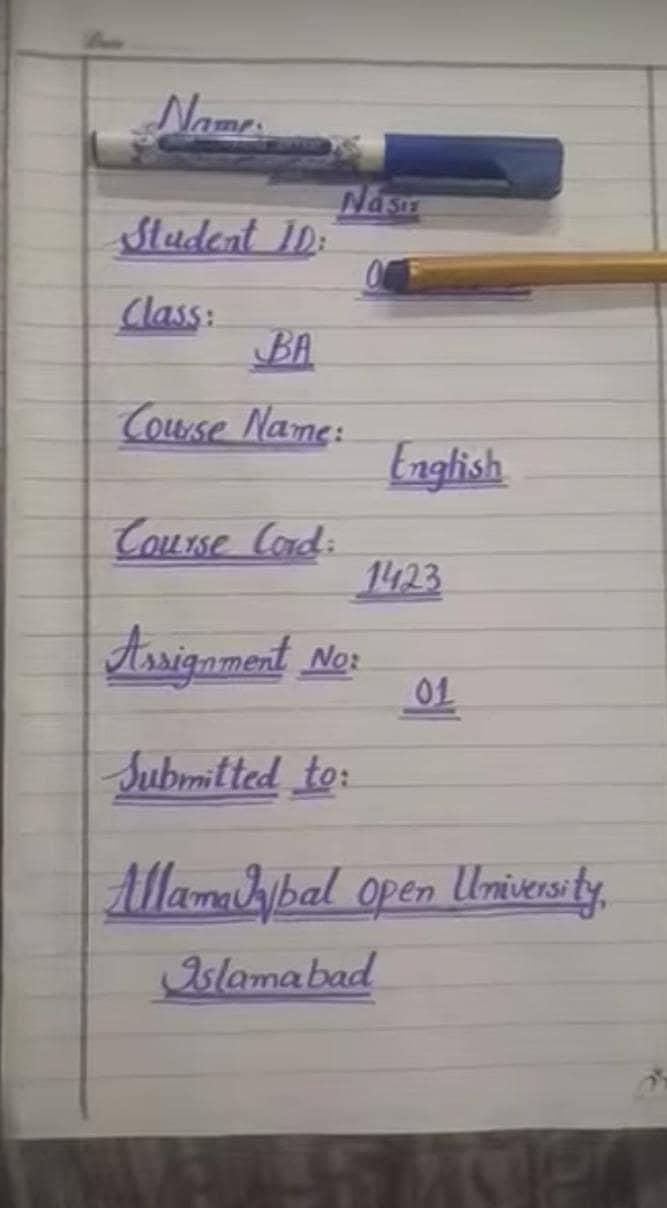 Name:
Nasir
Student ID:
0
Class:
BA
Course Name:
English
Course Cord:
1423
Assignment No:
01
Submitted to:
Allama Iqbal open University,
Islamabad